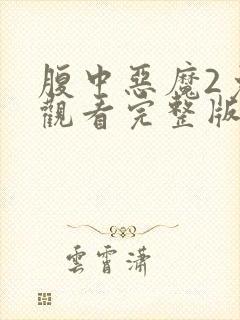 腹中惡魔2
觀看完整版
雲霄瀟